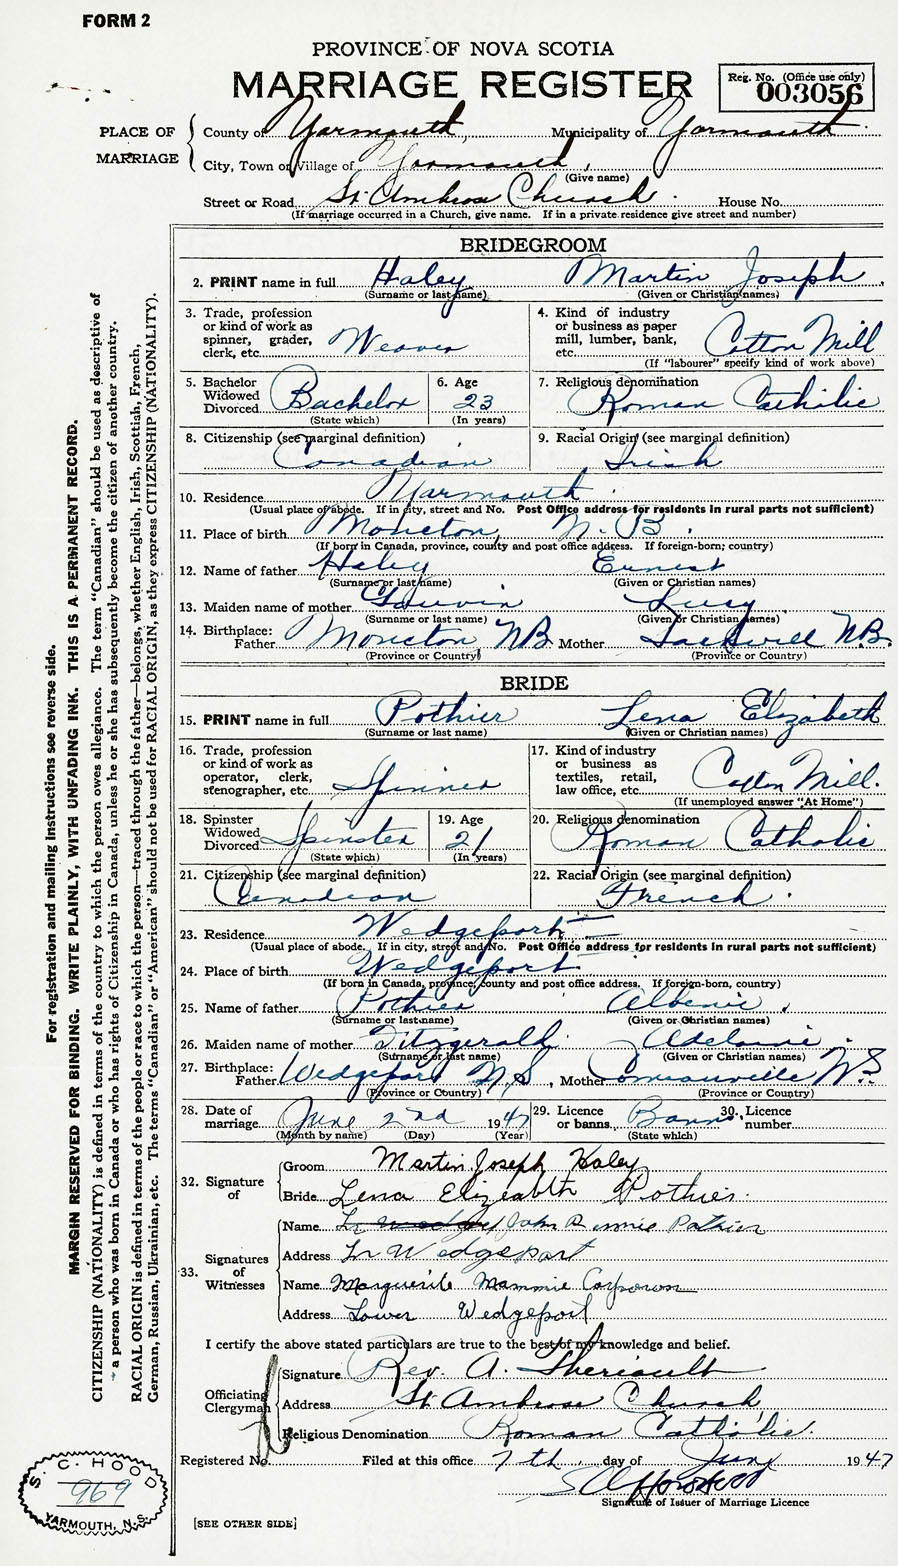 FORM 2
PROVINCE OF NOVA SCOTIA
MARRIAGE REGISTER
Reg. No. (Office use only)
003056
PLACE OF MARRIAGE
County of Yarmouth, Municipality of Yarmouth
City, Town or Village of Yarmouth,
(Give name)
Street or Road St. Ambrose Church. House No.
(If marriage occurred in a Church, give name. If in a private residence give street and number)
BRIDEGROOM
2. PRINT name in full Haley Martin Joseph
(Surname or last name) (Given or Christian names)
3. Trade, profession or kind of work as spinner, grader, clerk, etc. Weaver
4. Kind of industry or business as paper mill, lumber, bank, etc. Cotton Mill
(If "labourer" specify kind of work above)
5. Bachelor Widowed Divorced Bachelor
(State which)
6. Age 23
(In years)
7. Religious denomination Roman Catholic
8. Citizenship (see marginal definition) Canadian
9. Racial Origin (see marginal definition) Irish
10. Residence Yarmouth
(Usual place of abode. If in city, street and No. Post Office address for residents in rural parts not sufficient)
11. Place of birth Moncton, N. B.
(If born in Canada, province, county and post office address. If foreign-born; country)
12. Name of father Haley Ernest
(Surname or last name) (Given or Christian names)
13. Maiden name of mother Gauvin Lucy
(Surname or last name) (Given or Christian names)
14. Birthplace: Father Moncton NB Mother Sackvill N.B.
(Province or Country) (Province or Country)
BRIDE
15. PRINT name in full Pothier Lena Elizabeth
(Surname or last name) (Given or Christian names)
16. Trade, profession or kind of work as operator, clerk, stenographer, etc. Spinner
17. Kind of industry or business as textiles, retail, law office, etc. Cotton Mill.
(If unemployed answer "At Home")
18. Spinster Widowed Divorced Spinster
(State which)
19. Age 21
(In years)
20. Religious denomination Roman Catholic
21. Citizenship (see marginal definition) Canadian
22. Racial Origin (see marginal definition) French.
23. Residence Wedgeport
(Usual place of abode. If in city, street and No. Post Office address for residents in rural parts not sufficient)
24. Place of birth Wedgeport
(If born in Canada, province, county and post office address. If foreign-born, country)
25. Name of father Pothier Albenie
(Surname or last name) (Given or Christian names)
26. Maiden name of mother Fitzgerald Adelaine
(Surname or last name) (Given or Christian names)
27. Birthplace: Father Wedgeport N.S., Mother Comeauville N.S.
(Province or Country) (Province or Country)
28. Date of marriage June 2nd 1947
(Month by name) (Day) (Year)
29. Licence or banns Banns.
(State which)
30. Licence number
32. Signature of
Groom Martin Joseph Haley
Bride Lena Elizeabth Pothier.
33. Signatures of Witnesses
Name John Pothier
Address Lr Wedgeport
Name Marguerite Mammie
Address Lower Wedgeport
I certify the above stated particulars are true to the best of my knowledge and belief.
Officiating Clergyman
Signature Rev. A. Theriault
Address St. Ambrose Church
Religious Denomination Roman Catholic.
Registered No. Filed at this office 7th day of June 1947
Signature of Issuer of Marriage Licence
[SEE OTHER SIDE]
For registration and mailing instructions see reverse side.
MARGIN RESERVED FOR BINDING. WRITE PLAINLY, WITH UNFADING INK. THIS IS A PERMANENT RECORD.
CITIZENSHIP (NATIONALITY) is defined in terms of the country to which the person owes allegiance. The term "Canadian" should be used as descriptive of
a person who was born in Canada or who has rights of Citizenship in Canada, unless he or she has subsequently become the citizen of another country.
RACIAL ORIGIN is defined in terms of the people or race to which the person—traced through the father—belongs, whether English, Irish, Scottish, French,
German, Russian, Ukrainian, etc. The terms "Canadian" or "American" should not be used for RACIAL ORIGIN, as they express CITIZENSHIP (NATIONALITY).
S. C. HOOD
969
YARMOUTH, N.S.